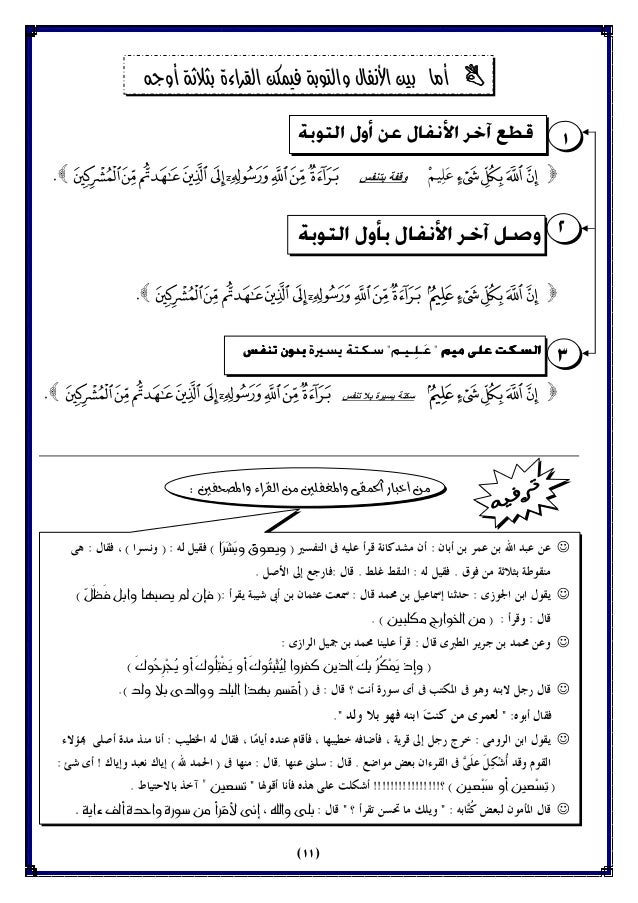 أما بين الأنفال والتوبة فيمكن القراءة بثلاثة أوجه
١
قطع آخر الأنفال عن أول التوبة
﴿ إِنَّ ٱللَّهَ بِكُلِّ شَىْءٍ عَلِيمٌۢ وقفة بتنفس بَرَآءَةٌ مِّنَ ٱللَّهِ وَرَسُولِهِۦٓ إِلَى ٱلَّذِينَ عَـٰهَدتُّم مِّنَ ٱلْمُشْرِكِينَ ﴾ .
٢
وصل آخر الأنفال بأول التوبة
﴿ إِنَّ ٱللَّهَ بِكُلِّ شَىْءٍ عَلِيمٌۢ بَرَآءَةٌ مِّنَ ٱللَّهِ وَرَسُولِهِۦٓ إِلَى ٱلَّذِينَ عَـٰهَدتُّم مِّنَ ٱلْمُشْرِكِينَ ﴾ .
٣
السكت على ميم " عَـلِـيـم" سـكـتـة يسـيرة بدون تنفس
﴿ إِنَّ ٱللَّهَ بِكُلِّ شَىْءٍ عَلِيمٌۢ سكتة يسيرة بلا تنفس بَرَآءَةٌ مِّنَ ٱللَّهِ وَرَسُولِهِۦٓ إِلَى ٱلَّذِينَ عَـٰهَدتُّم مِّنَ ٱلْمُشْرِكِينَ ﴾ .
ترفيه
من أخبار الحمقى والمغفلين من القراء والمصحفين :
عن عبد الله بن عمر بن أبان : أن مشدكانة قرأ عليه فى التفسير ( ويعوق وبَشَرَا ) فقيل له : ( ونسرا ) ، فقال : هى
منقوطة بثلاثة من فوق . فقيل له : النقط غلط . قال :فارجع إلى الأصل .
يقول ابن الجوزى : حدثنا إسماعيل بن محمد قال : سمعت عثمان بن أبى شيبة يقرأ :( فإن لم يصبها وابل فَظَلّ )
قال : وقرأ : ( من الخوارج مكلبين ) .
وعن محمد بن جرير الطبرى قال : قرأ علينا محمد بن جميل الرازى :
( وإذ يَمْكُرُ بكَ الذين كفروا لِيُثْبِتُوكَ أو يَقْتِلُوكَ أو يُـجْرِحُوكَ )
قال رجل لابنه وهو فى المكتب فى أى سورة أنت ؟ قال : فى ( أقسم بهذا البلد ووالدى بلا ولد ).
فقال أبوه: " لعمرى من كنتَ ابنه فهو بلا ولد ".
يقول ابن الرومى : خرج رجل إلى قرية ، فأضافه خطيبها ، فأقام عنده أيامًا ، فقال له الخطيب : أنا منذ مدة أصلى بهؤلاء
القوم وقد أُشْكِلَ عَلَىَّ فى القرءان بعض مواضع . قال : سلنى عنها .قال : منها فى ( الحمد لله ) إياك نعبد وإياك ! أى شئ :
( تِسْعين أو سَبْعين ) ؟!!!!!!!!!!!!!!!! أشكلت على هذه فأنا أقولها " تسعين " آخذ بالاحتياط .
قال المأمون لبعض كُتَّابه : " ويلك ما تحسن تقرأ ؟ " قال : بلى والله ، إنى لأقرأ من سورة واحدة ألف ءاية .
(١١)